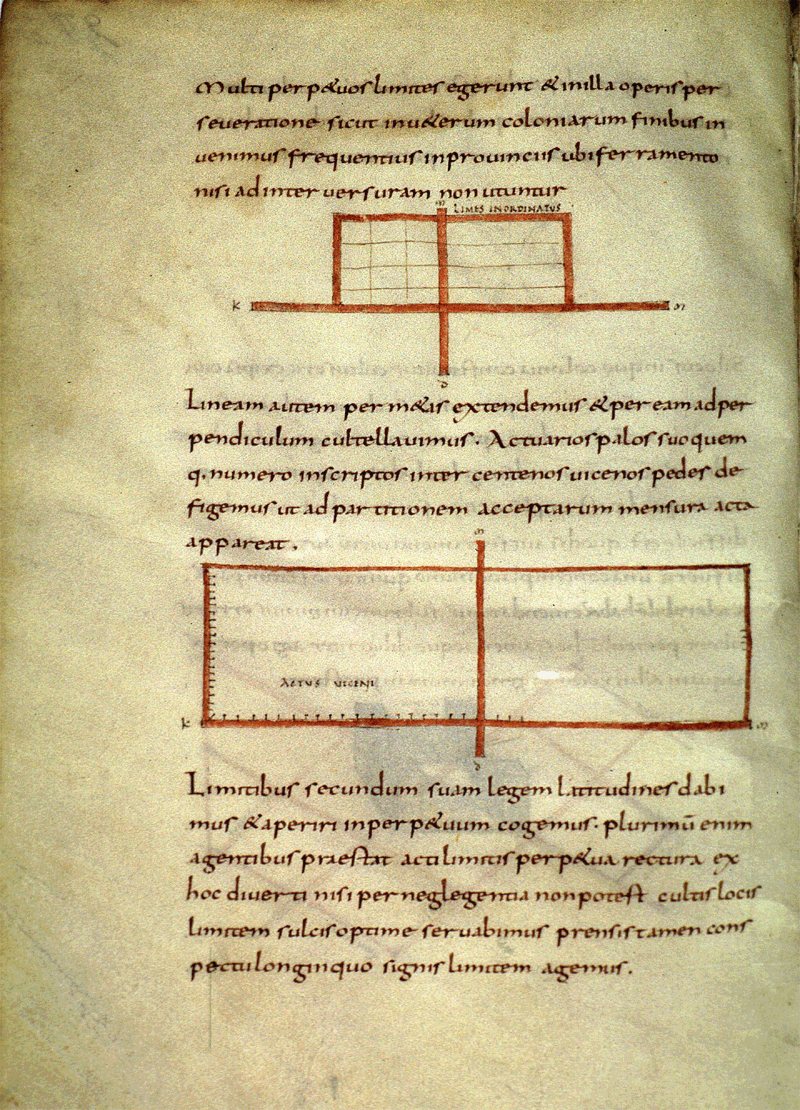 Multi perp&uos limites egerunt & in illa operis per
seueratione sicut in u&erum coloniarum finibus in
uenimus frequentius in prouinciis ubi ferramento
nisi ad interuersuram non utuntur
LIMES INORDINATUS
K
Lineam autem per m&as extendemus & per eam ad per
pendiculum cultellauimus. Actuarios palos suo quem
q. numero inscriptos inter centenos uicenos pedes de
figemus ut ad partitionem acceptarum mensura acta
appareat.
ACTUS UICENI
K
Limitibus secundum suam legem latitudines dabi
mus & aperiri in perp&uum cogemus. plurimū enim
agentibus praestat acti limitis perp&ua rectura ex
hoc diuerti nisi per neglegentia non potest cultis locis
limitem sulcis optime seruabimus prensis tamen cons
pectu longinquo signis limitem agemus.